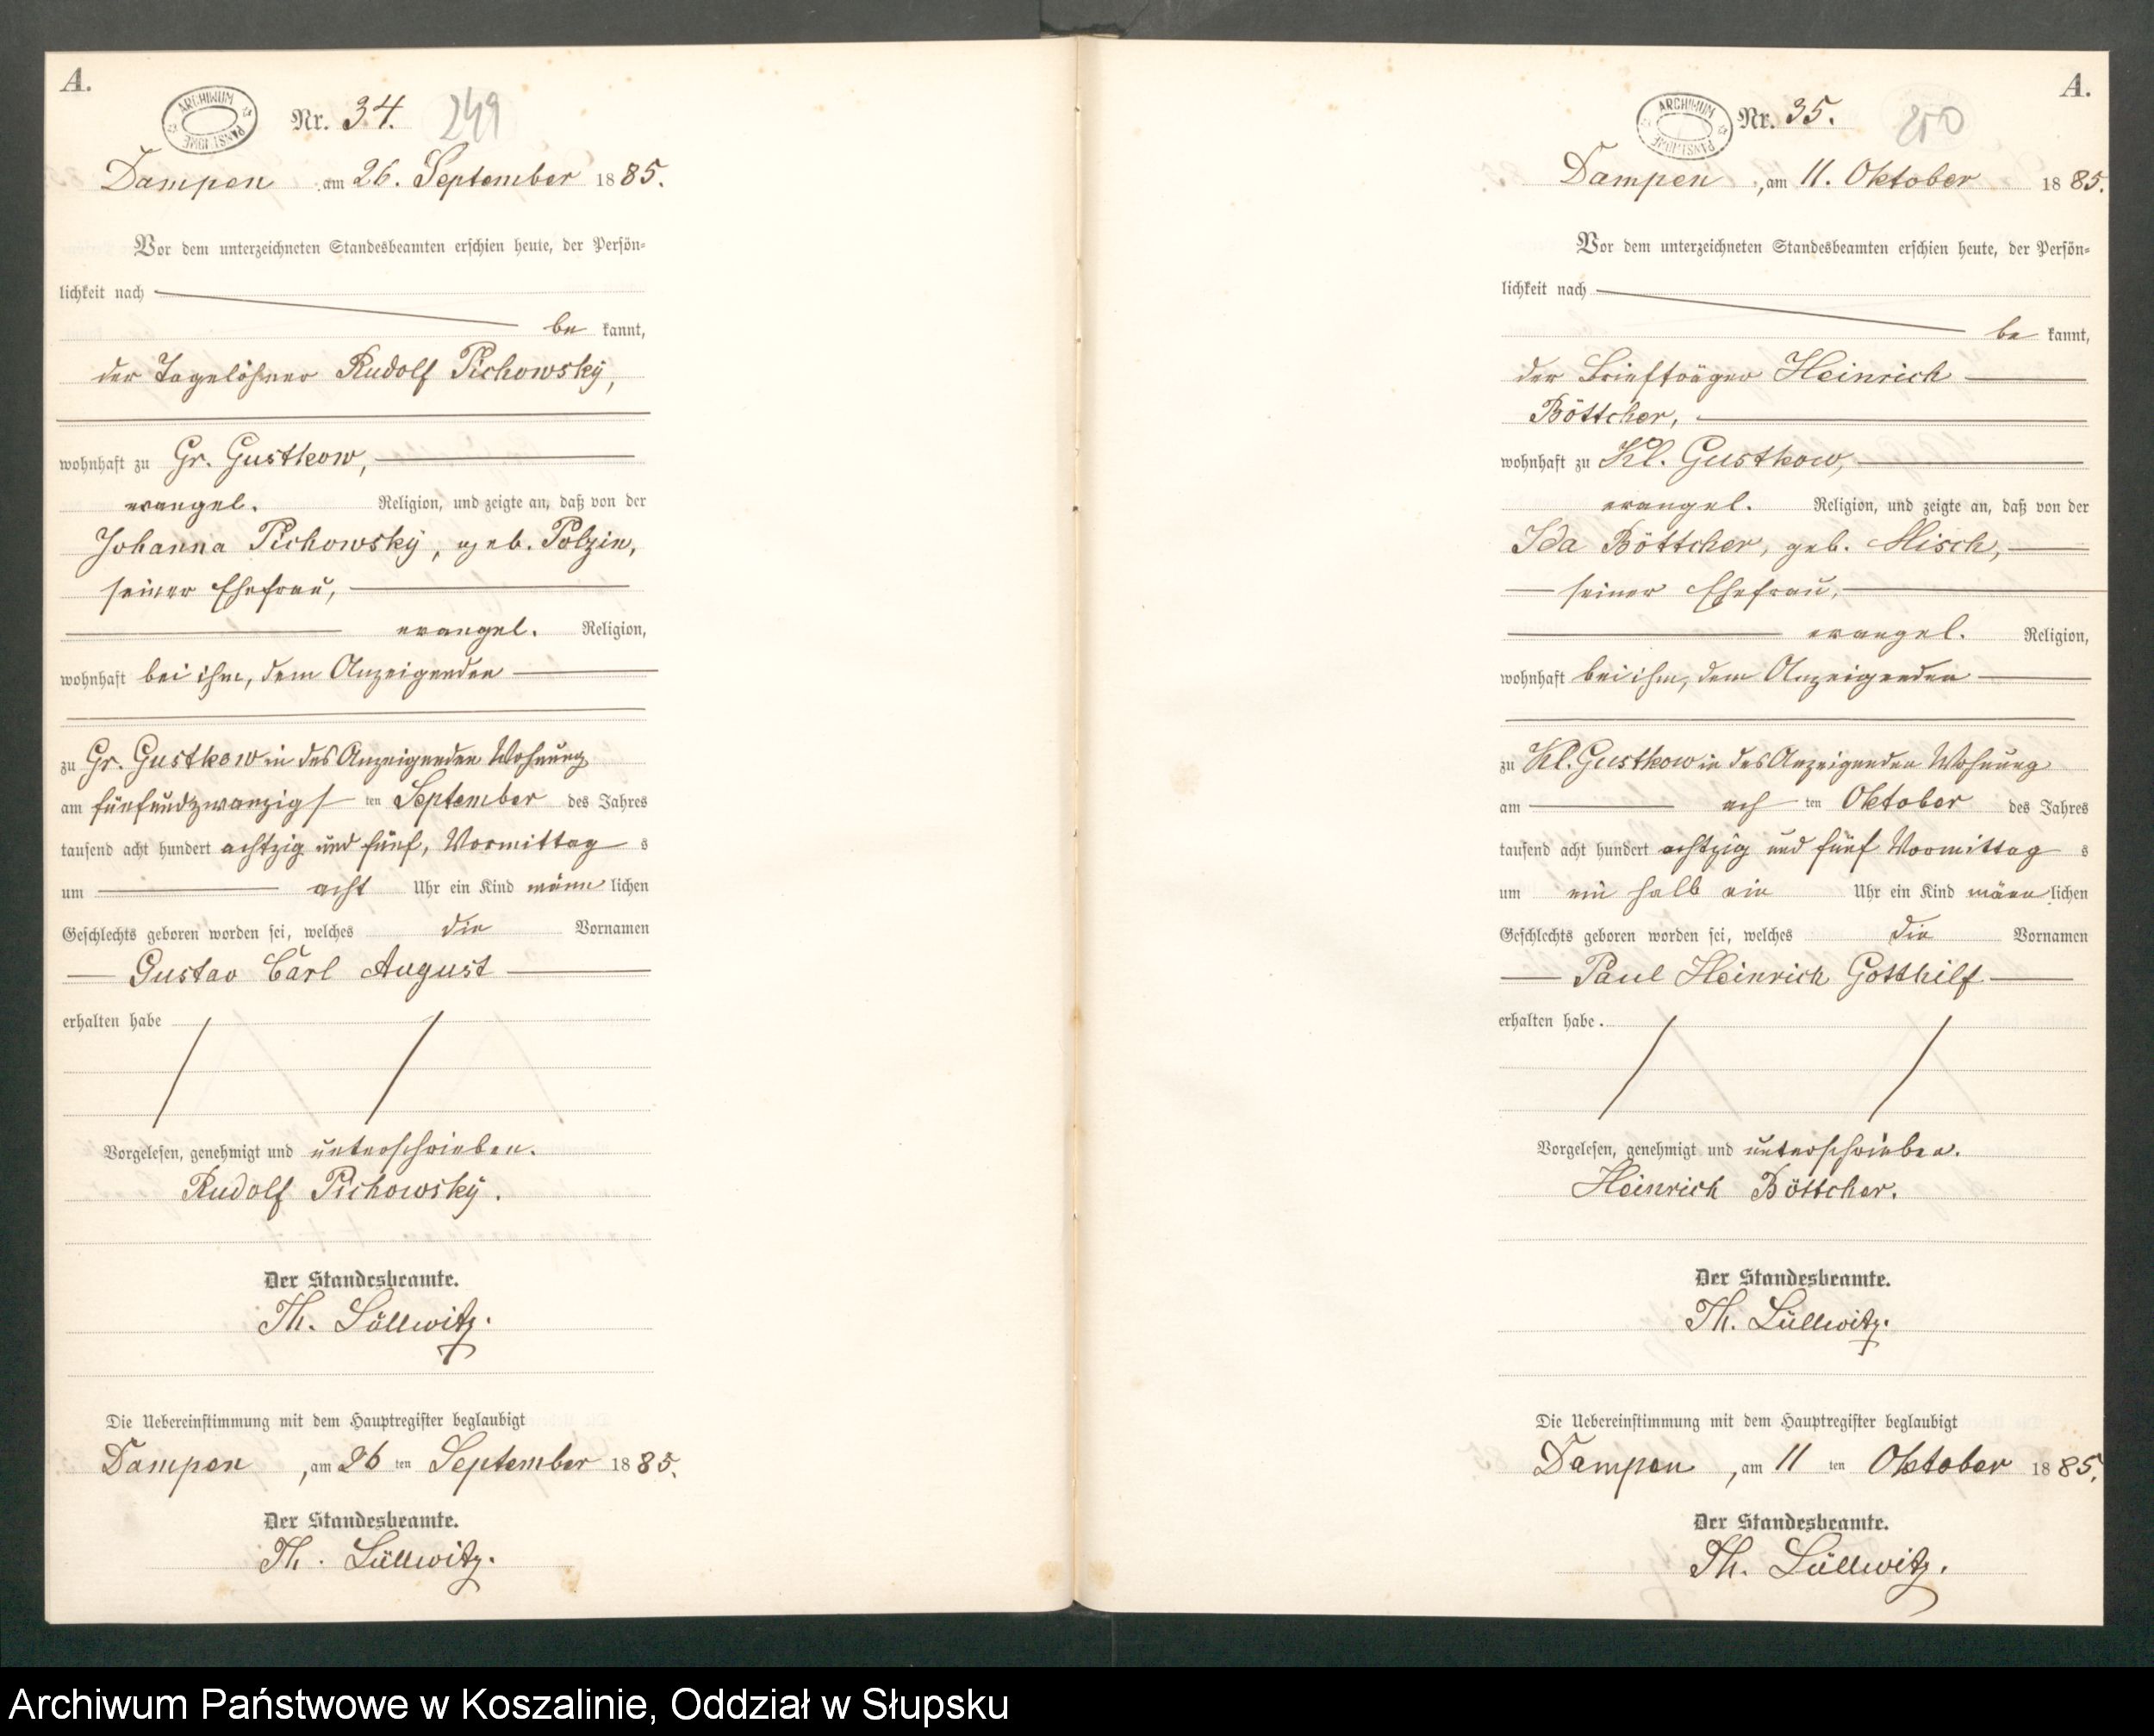 A.
ARCHIWUM PAŃSTWOWE
Nr. 34. 249
Dampen, am 26. September 1885.
Vor dem unterzeichneten Standesbeamten erschien heute, der Persön-
lichkeit nach
be kannt,
der Tagelöhner Rudolf Pichowsky,
wohnhaft zu Gr. Gustkow,
evangel. Religion, und zeigte an, daß von der
Johanna Pichowsky, geb. Polzin,
seiner Ehefrau,
evangel. Religion,
wohnhaft bei ihm, dem Anzeigenden
zu Gr. Gustkow in des Anzeigenden Wohnung
am fünfundzwanzigs ten September des Jahres
tausend acht hundert achtzig und fünf, Vormittag s
um acht Uhr ein Kind männ lichen
Geschlechts geboren worden sei, welches die Vornamen
Gustav Carl August
erhalten habe
Vorgelesen, genehmigt und unterschrieben.
Rudolf Pichowsky.
Der Standesbeamte.
Th. Lüllwitz.
Die Uebereinstimmung mit dem Hauptregister beglaubigt
Dampen, am 26 ten September 1885.
Der Standesbeamte.
Th. Lüllwitz.
A.
ARCHIWUM PAŃSTWOWE
Nr. 35. 250
Dampen, am 11. Oktober 1885.
Vor dem unterzeichneten Standesbeamten erschien heute, der Persön-
lichkeit nach
be kannt,
der Briefträger Heinrich
Böttcher,
wohnhaft zu Kl. Gustkow,
evangel. Religion, und zeigte an, daß von der
Ida Böttcher, geb. Misch,
seiner Ehefrau,
evangel. Religion,
wohnhaft bei ihm, dem Anzeigenden
zu Kl. Gustkow in des Anzeigenden Wohnung
am ach ten Oktober des Jahres
tausend acht hundert achtzig und fünf Vormittag s
um ein halb ein Uhr ein Kind männ lichen
Geschlechts geboren worden sei, welches die Vornamen
Paul Heinrich Gotthilf
erhalten habe.
Vorgelesen, genehmigt und unterschrieben.
Heinrich Böttcher.
Der Standesbeamte.
Th. Lüllwitz.
Die Uebereinstimmung mit dem Hauptregister beglaubigt
Dampen, am 11 ten Oktober 1885.
Der Standesbeamte.
Th. Lüllwitz.
Archiwum Państwowe w Koszalinie, Oddział w Słupsku